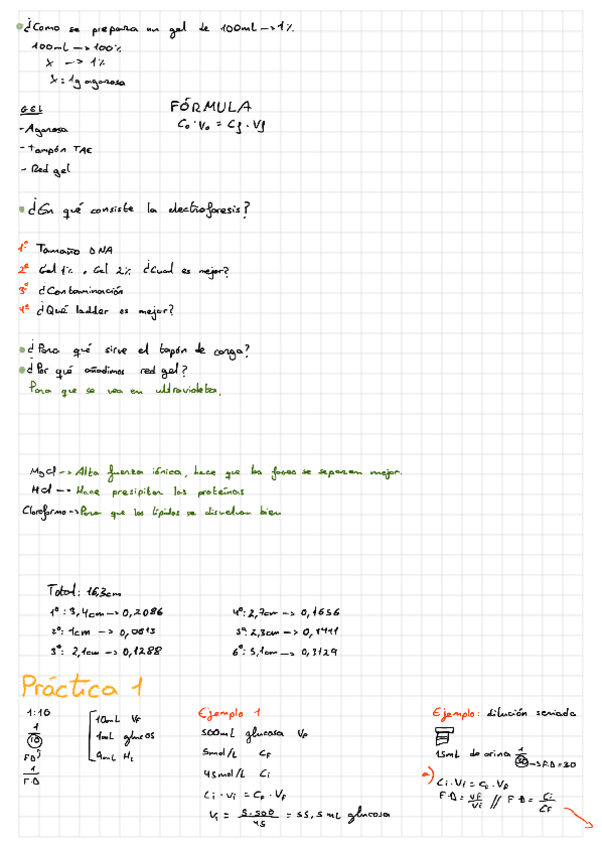 ¿Como se prepara un gel de 100mL -> 1%.
100mL -> 100%
x -> 1%
x = 1g agarosa
GEL
FÓRMULA
- Agarosa
Co · Vo = Cf · Vf
- Tampón TAE
- Red gel
¿En qué consiste la electroforesis?
1º Tamaño DNA
2º Gel 1%, Gel 2% ¿Cual es mejor?
3º ¿Contaminación
4º ¿Qué ladder es mejor?
¿Para qué sirve el tapón de carga?
¿Por qué añadimos red gel?
Para que se vea en ultravioleta.
MgCl -> Alta fuerza iónica, hace que las fases se separen mejor.
HCl -> Hace presipitar las proteínas
Cloroformo -> Para que los lípidos se disuelvan bien
Total: 16,3cm
1º: 3,4cm -> 0,2086
4º: 2,7cm -> 0,1656
2º: 1cm -> 0,0613
5º: 2,3cm -> 0,1411
3º: 2,1cm -> 0,1288
6º: 5,1cm -> 0,3129
Práctica 1
1:10
1/10
FD
1/F.D
10mL Vf
1mL glucos
9mL H2
Ejemplo 1
500mL glucosa VF
5mol/L CF
45mol/L Ci
Ci · Vi = CF · VF
Vi = 5·500/45 = 55,5 mL glucosa
Ejemplo: dilución seriada
15mL de orina 1/30 -> F.D = 30
a) Ci · Vi = CF · VF
F·D = VF/Vi // F·D = Ci/CF